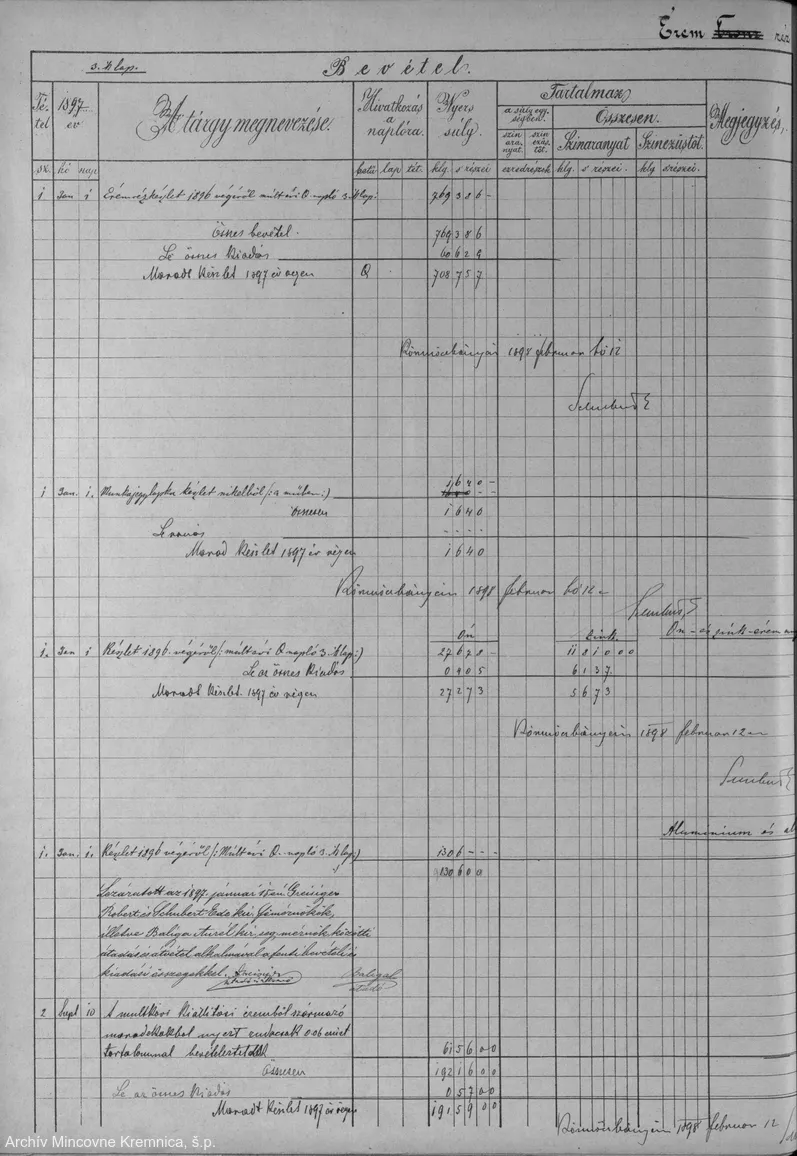 Érem Franz réz
3. ½ lap.
Bevétel.
Té-tel
1897
év
A tárgy megnevezése.
Hivatkozás a naplóra.
Nyers súly.
Tartalmaz
a súly egységben.
Összesen.
szin aranyat.
szin ezüstöt.
Szinaranyat
Szinezüstöt.
Megjegyzés.
sz. hó nap betű lap tét. klg. s részei ezredrészek klg. s részei. klg. s részei.
1 Jan 1 Éremrézkészlet 1896 végéről múlt évi Q. napló 3. ½ lap: 769386-
Össes bevétel. 769386
Le össes Kiadás 60629
Maradt Készlet 1897 év végen Q 708757
Körmöczbányán 1898 februar hó 12
Schubert E
1 Jan. 1. készlet nikelből 1,640-
Összesen 1640
Le
Marad Készlet 1897 év végen 1640
Körmöczbányán 1898 februar hó 12-n
Schubert E
Ón
Zink.
Ón- és zink-érem
1. Jan 1 Készlet 1896. végéről /: múlt évi Q. napló 3. ½ lap :/ 27678- 1181000
Le az össes Kiadás 0405 6137.
Maradt Készlet. 1897 év végen 27273 5673
Körmöczbányán 1898 februar 12-n
Schubert E
Aluminium és
1. Jan. 1. Készlet 1896 végéről /: Múlt évi Q. napló 3. ½ lap :/ 1306---
130600
Lezáratott az 1897. január 15én Greisiger
Robert és Schubert Ede kir. főmérnökök,
illetve Baliga Aurél kir. seg. mérnök közötti
átadás és átvétel alkalmával a fenti bevételi és
kiadási összegekkel. Greisiger Baliga
átadó
2 Sept 10 A multkori Kiállitási éremből származó
maradékokból nyert rudacsok 0.06
tartalommal bevételeztetett 615600
Összesen 1921600
Le az össes Kiadás 05700
Maradt Készlet 1897 év végen 1915900
Körmöczbányán 1898 februar 12
Archív Mincovne Kremnica, š.p.